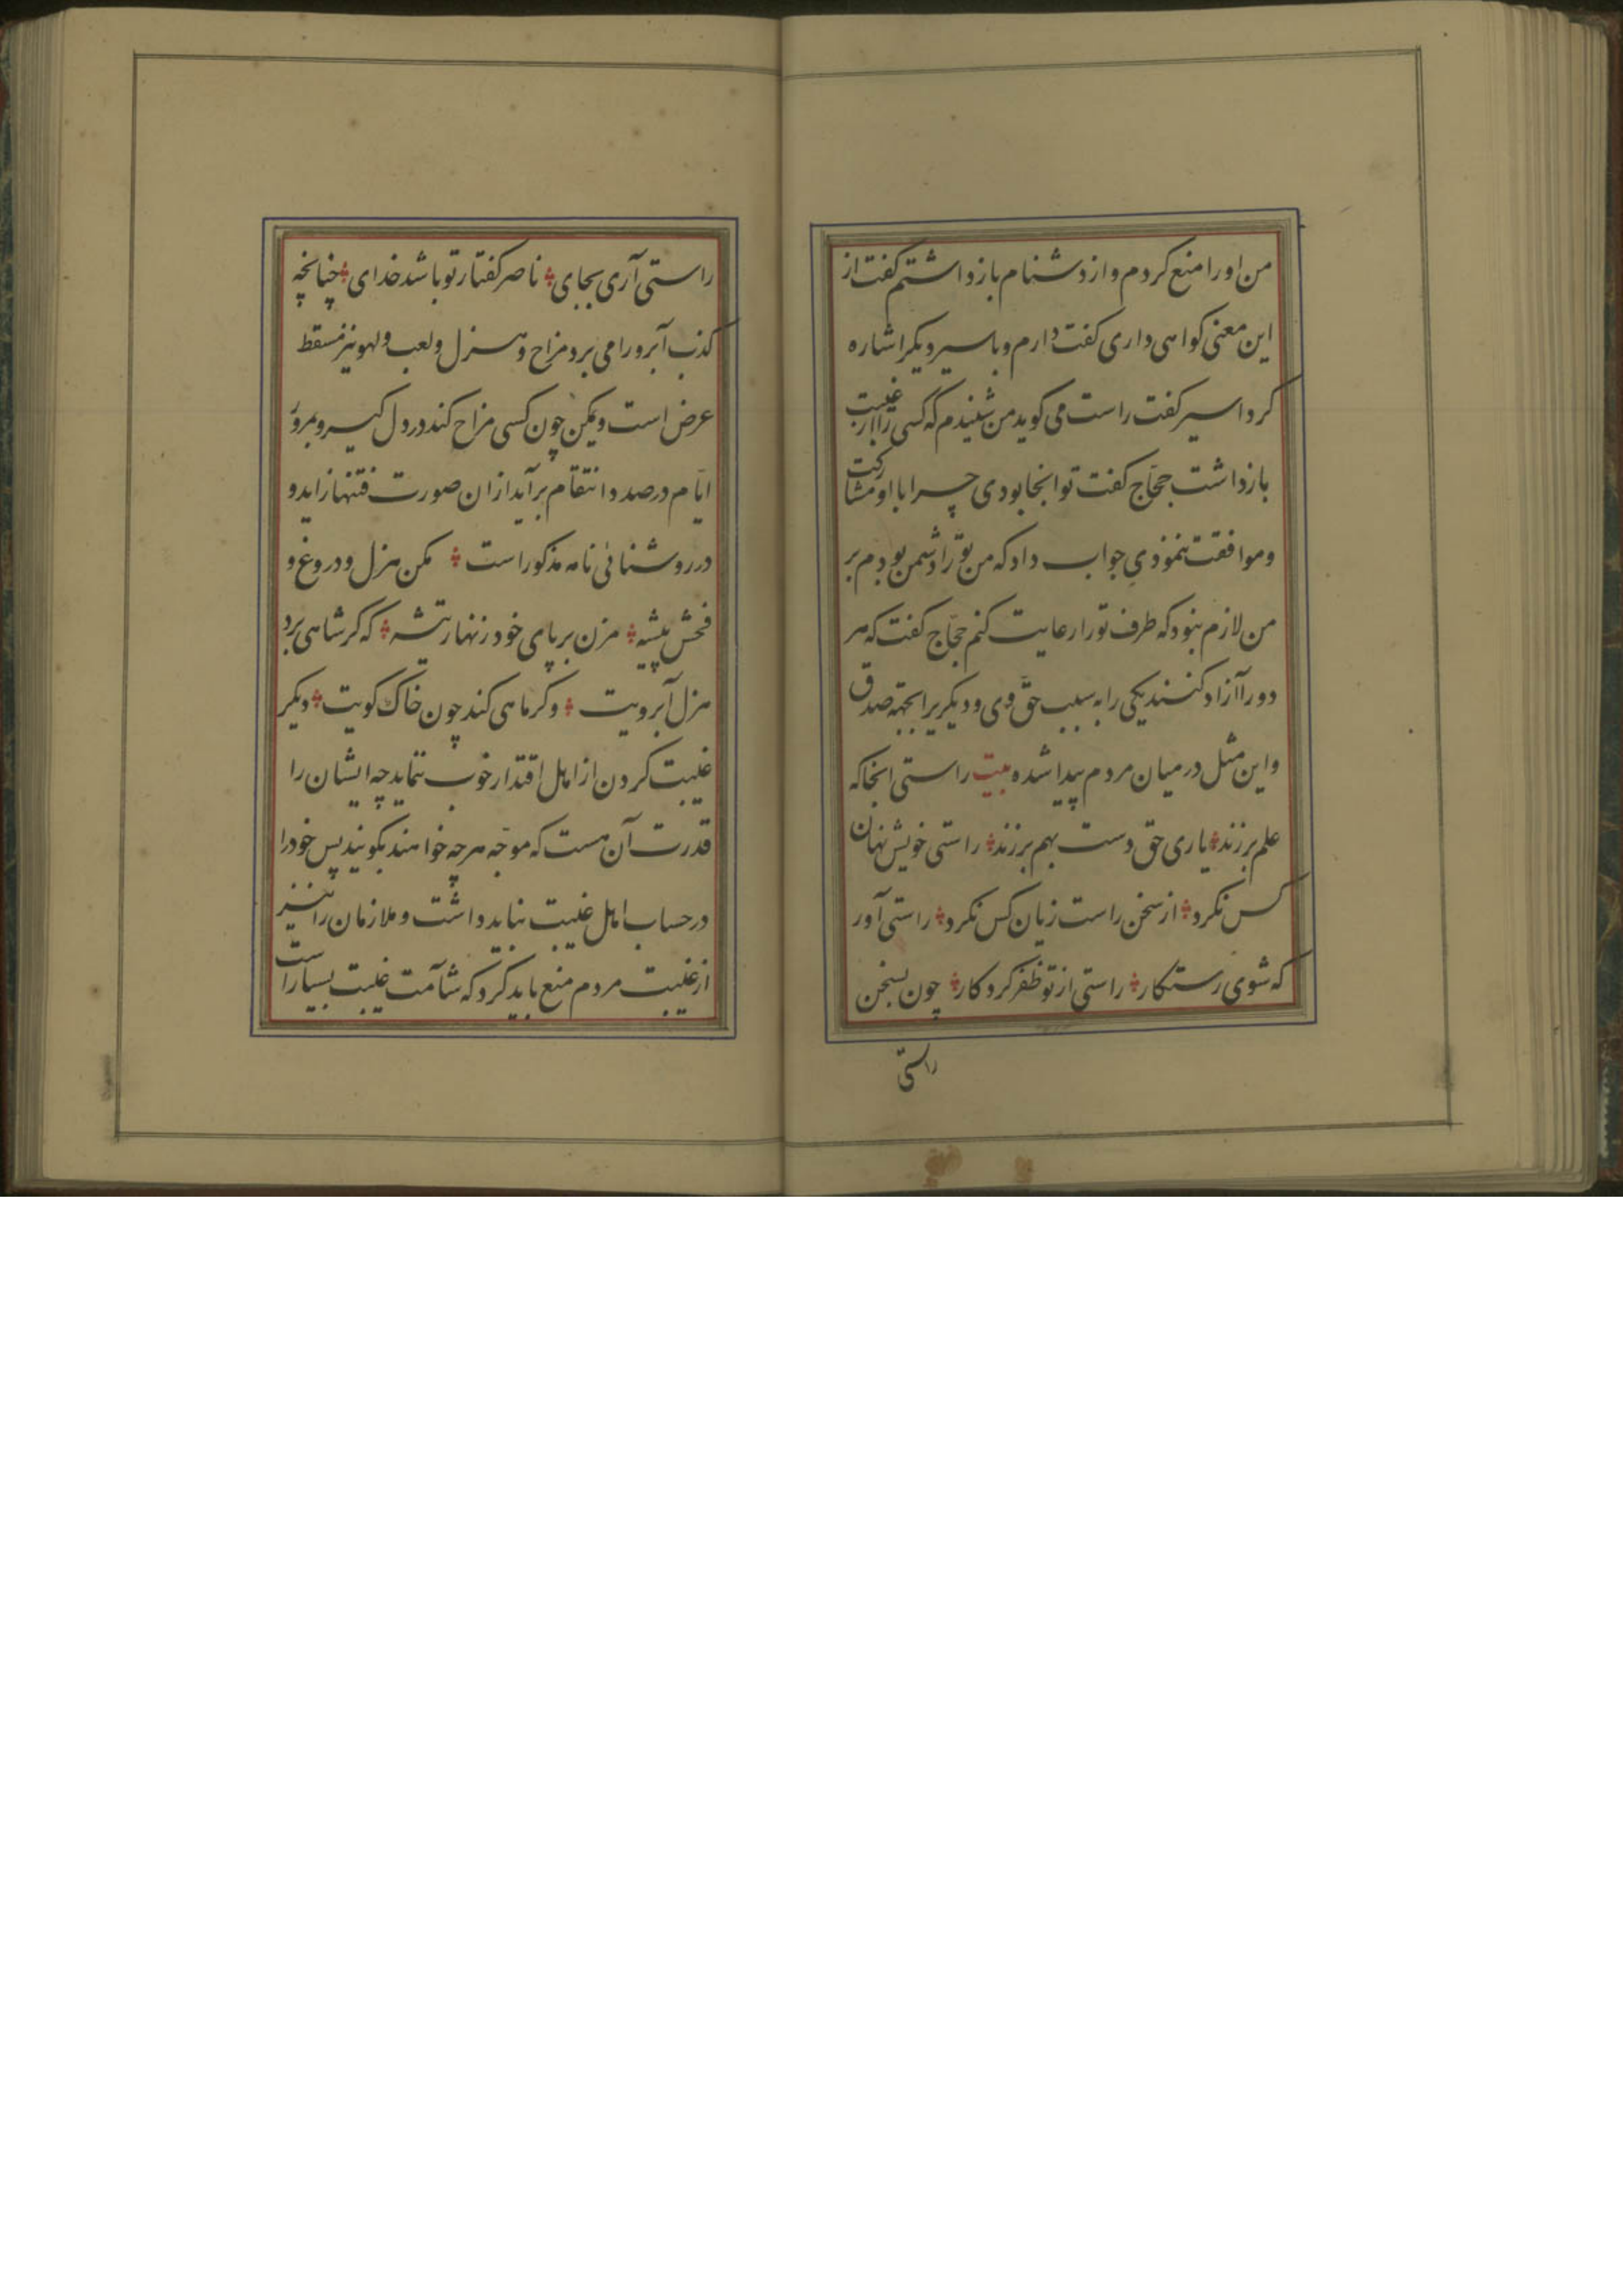 من اورا منع کردم و از دشنام بازداشتم گفت از
این معنی کواهی داری گفت دارم و باسیر دیکر اشاره
کرد اسیر گفت راست می کوید من شنیدم که کسی را از غیبت
بازداشت حجّاج کفت تو انجا بودی چرا با او مشارکت
و موافقت ننمودی جواب داد که من تو را دشمن بودم بر
من لازم نبود که طرف تو را رعایت کنم حجّاج کفت که هر
دو را آزاد کنند یکی را به سبب حق وی و دیکریرا بجهته صدق
و این مثل در میان مردم پیدا شده بیت راستی انجا که
علم برزند یاری حق دست بهم برزند راستی خویش نهان
کس نکرد از سخن راست زیان کس نکرد راستی آور
که شوی رستکار راستی از تو ظفر کردکار چون بسخن
راستی
راستی آری بجای ناصر کفتار تو باشد خدای چنانچه
کذب آبرو را می برد مزاح و هزل و لعب و لهو نیز مسقط
عرض است و یمکن چون کسی مزاح کند در دل کیرد و بمرور
ایّام در صدد انتقام برآید ازان صورت فتنها زاید و
در روشنائی نامه مذکور است مکن هزل و دروغ و
فحش پیشه مزن بر پای خود زنهار تیشه که کر شاهی برد
هزل آبرویت وکر ماهی کند چون خاک کویت دیکر
غیبت کردن از اهل اقتدار خوب ننماید چه ایشان را
قدرت آن هست که موجّه هرچه خواهند بکویند پس خود را
در حساب اهل غیبت نباید داشت و ملازمان را نیز
از غیبت مردم منع باید کرد که شآمت غیبت بسیار است